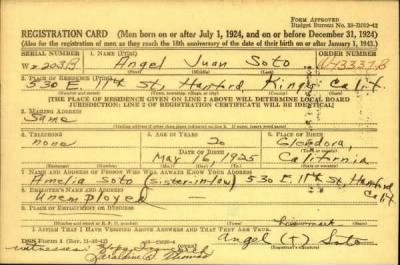 FORM APPROVED
REGISTRATION CARD (Men born on or after July 1, 1924, and on or before December 31, 1924)
(Also for the registration of men as they reach the 18th anniversary of the date of their birth on or after January 1, 1943.)
SERIAL NUMBER
1. NAME (Print)
ORDER NUMBER
W Angel Juan Soto
(First) (Middle) (Last)
2. PLACE OF RESIDENCE (Print)
530 E. 11th St., Hanford, Kings Calif.
[THE PLACE OF RESIDENCE GIVEN ON LINE 2 ABOVE WILL DETERMINE LOCAL BOARD
JURISDICTION; LINE 2 OF REGISTRATION CERTIFICATE WILL BE IDENTICAL]
3. MAILING ADDRESS
Same
4. TELEPHONE
5. AGE IN YEARS
6. PLACE OF BIRTH
none
20
Glendora,
DATE OF BIRTH
May 16, 1925
California
7. NAME AND ADDRESS OF PERSON WHO WILL ALWAYS KNOW YOUR ADDRESS
Amelia Soto (sister-in-law) 530 E. 11th St, Hanford
Calif.
8. EMPLOYER'S NAME AND ADDRESS
Unemployed
I AFFIRM THAT I HAVE VERIFIED ABOVE ANSWERS AND THAT THEY ARE TRUE.
DSS Form 1
Angel (+) Soto
witnesses:
Thomas